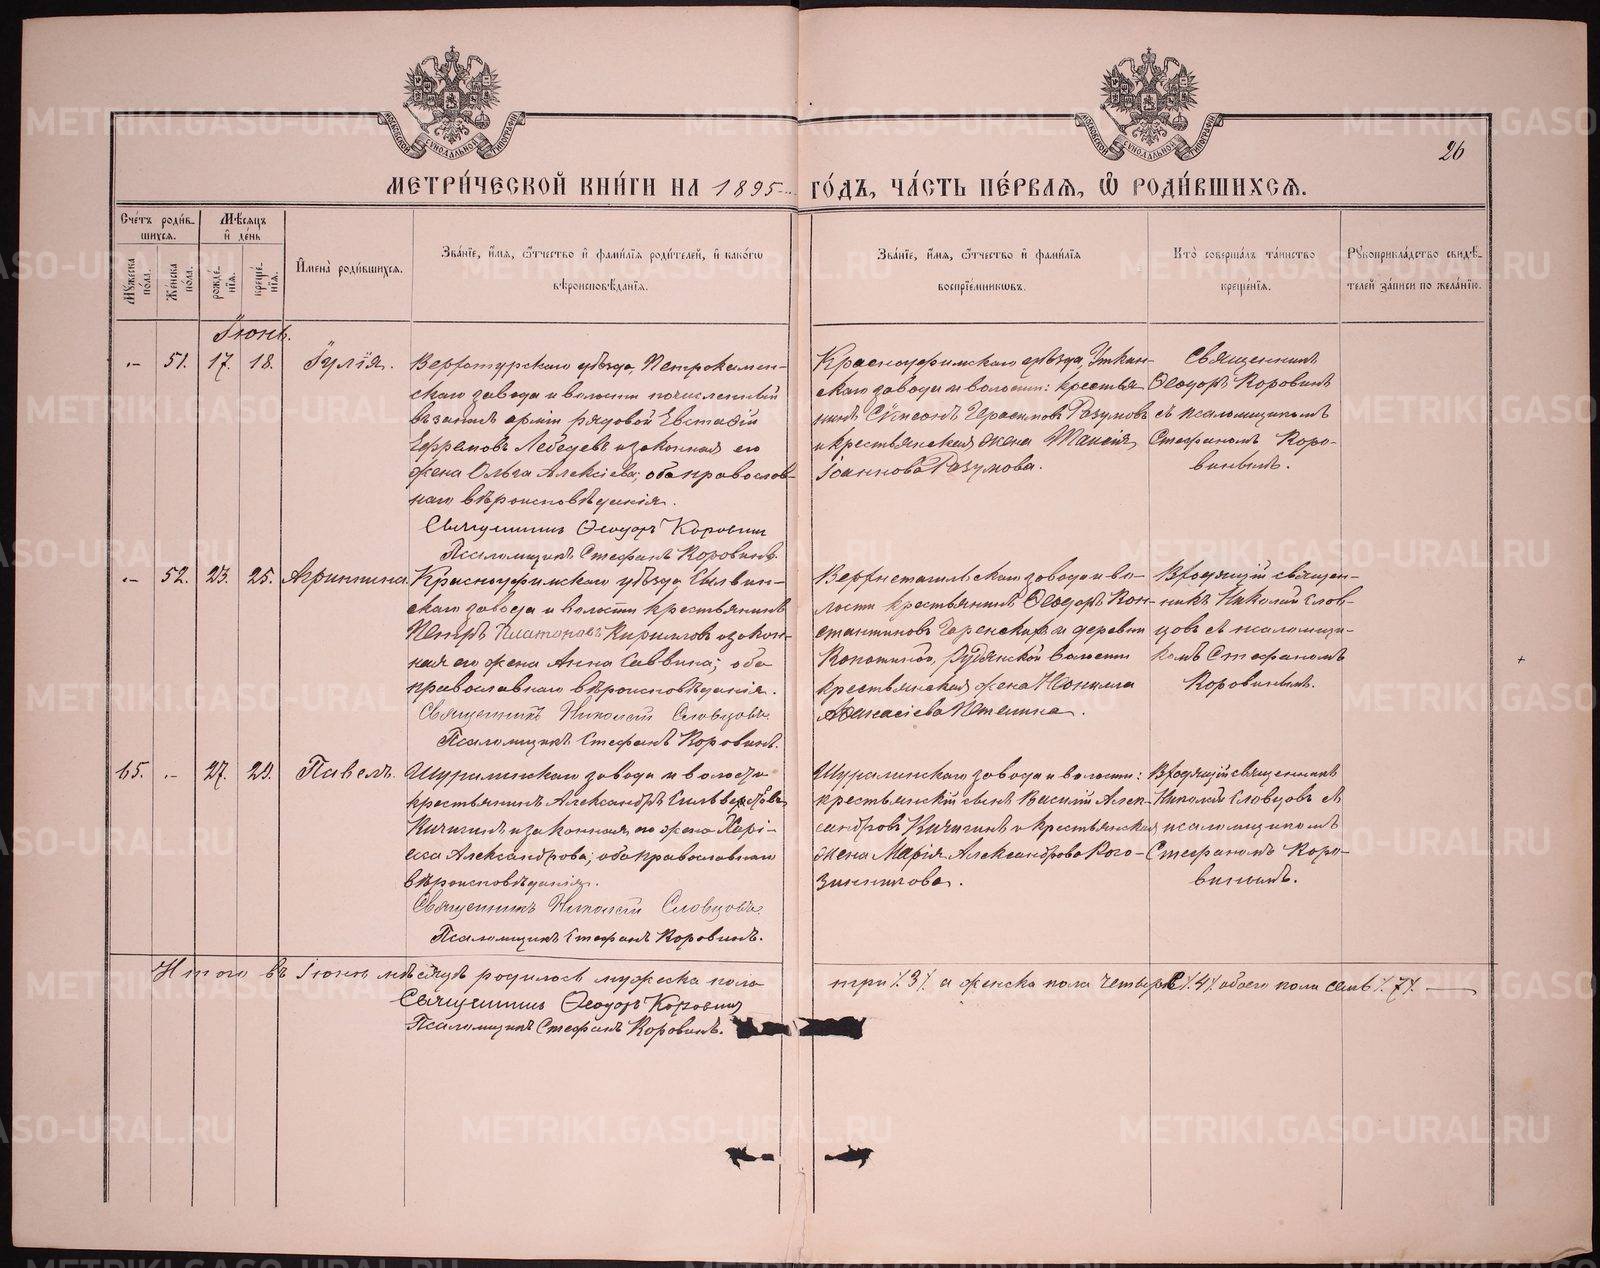 МОСКОВСКОЙ СѴНОДАЛЬНОЙ ТИПОГРАФІИ
МОСКОВСКОЙ СѴНОДАЛЬНОЙ ТИПОГРАФІИ
26
МЕТРИ́ЧЕСКОЙ КНИ́ГИ НА 1895 ГО́ДЪ, ЧА́СТЬ ПЕ́РВАѦ, Ѡ҆ РОДИ́ВШИХСѦ.
Сче́тъ роди́в-
шихсѧ.
Му́жеска по́ла.
Же́нска по́ла.
Мѣ́сѧцъ
и҆ де́нь
рожде́-
нїѧ.
креще́-
нїѧ.
И҆мена̀ роди́вшихсѧ.
Зва́нїе, и҆́мѧ, ѻ҆́тчество и҆ фами́лїѧ роди́телей, и҆ како́гѡ
вѣроисповѣ́данїѧ.
Зва́нїе, и҆́мѧ, ѻ҆́тчество и҆ фами́лїѧ
воспрїе́мникѡвъ.
Кто̀ соверша́лъ та́инство
креще́нїѧ.
Рꙋкоприкла́дство свидѣ́-
телей за́писи по жела́нїю.
Іюнь.
"- 51. 17. 18. Іулія.
Верхотурскаго уѣзда, Петрокамен-
скаго завода и волости почисленный
въ запасъ арміи рядовой Евстафій
Ефремовъ Лебедевъ и законная его
жена Ольга Алексіева; оба православ-
наго вѣроисповѣданія.
Священникъ Ѳеодоръ Коровинъ
Псаломщикъ Стефанъ Коровинъ.
Красноуфимскаго уѣзда, Уткин-
скаго завода и волости: крестья-
нинъ Сѵмеонъ Герасимовъ Разумовъ
и крестьянская жена Таисія
Іоаннова Разумова.
Священникъ
Ѳеодоръ Коровинъ
съ псаломщикомъ
Стефаномъ Коро-
винымъ.
"- 52. 23. 25. Агриппина.
Красноуфимскаго уѣзда Сылвин-
скаго завода и волости крестьянинъ
Петръ Платоновъ Кирилловъ и закон-
ная его жена Анна Саввина; оба
православнаго вѣроисповѣданія.
Священникъ Николай Словцовъ.
Псаломщикъ Стефанъ Коровинъ.
Верхнетагильскаго завода и во-
лости крестьянинъ Ѳеодоръ Кон-
стантиновъ и деревни
волости
крестьянская жена
Аѳанасіева
Входящій священ-
никъ Николай Слов-
цовъ съ псаломщи-
комъ Стефаномъ
Коровинымъ.
65. "- 27. 29. Павелъ.
Шуралинскаго завода и волости
крестьянинъ Александръ Сильвестровъ
Кичигинъ и законная его жена Лари-
сса Александрова; оба православнаго
вѣроисповѣданія.
Священникъ Николай Словцовъ.
Псаломщикъ Стефанъ Коровинъ.
Шуралинскаго завода и волости:
крестьянскій сынъ Василій Алек-
сандровъ Кичигинъ и крестьянская
жена Марія Александрова Рого-
зинникова.
Входящій священникъ
Николай Словцовъ съ
псаломщикомъ
Стефаномъ Коро-
винымъ.
Итого въ Іюнѣ мѣсяцѣ родилось мужеска пола три /.3/. а женска пола четыре /.4/. обоего пола семь /.7/.
Священникъ Ѳеодоръ Коровинъ
Псаломщикъ Стефанъ Коровинъ.
METRIKI.GASO-URAL.RU